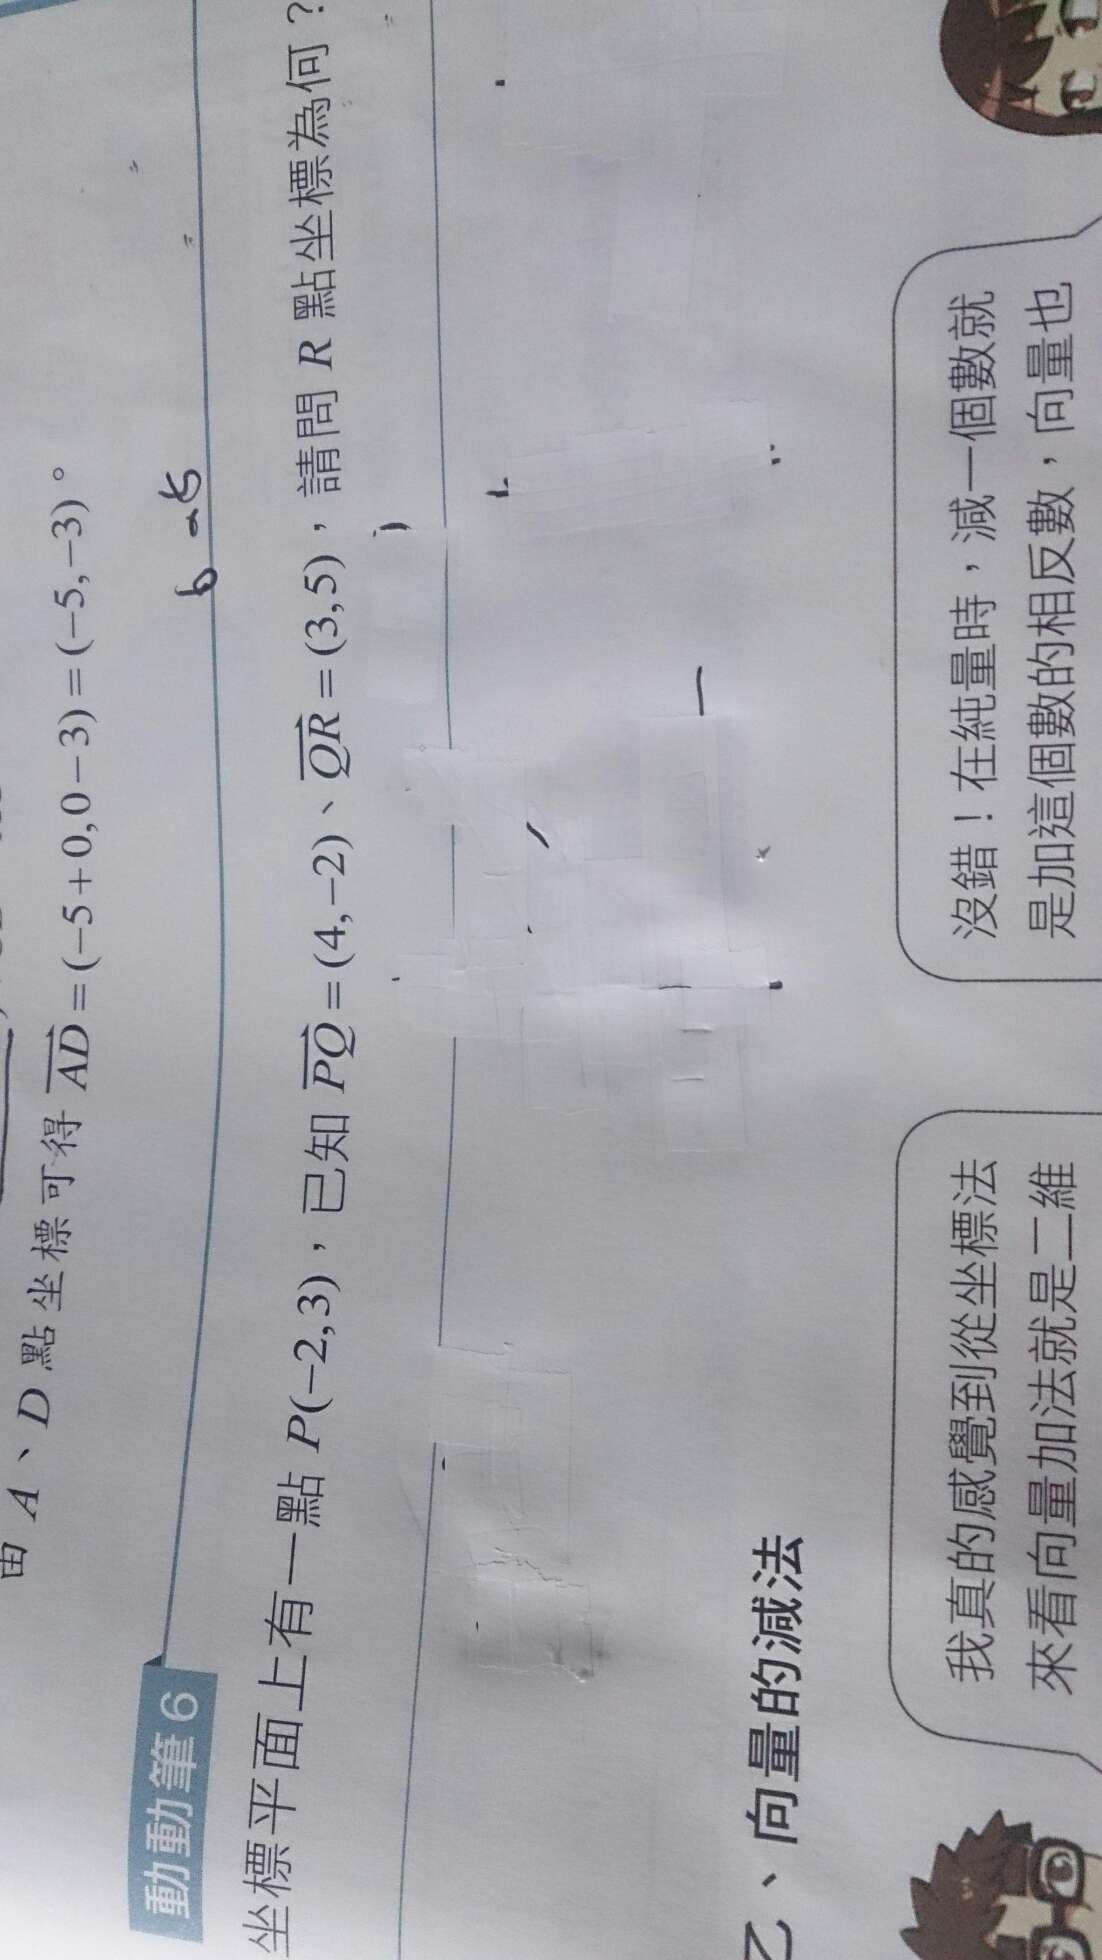 由 A、D 點坐標可得 AD=(−5+0,0−3)=(−5,−3)。
動動筆 6
坐標平面上有一點 P(−2,3)，已知 PQ=(4,−2)、QR=(3,5)，請問 R 點坐標為何？
乙、向量的減法
我真的感覺到從坐標法
來看向量加法就是二維
沒錯！在純量時，減一個數就
是加這個數的相反數，向量也